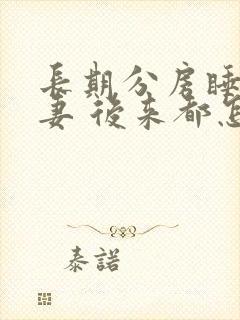 長期分房睡
妻 後来都怎
泰諾